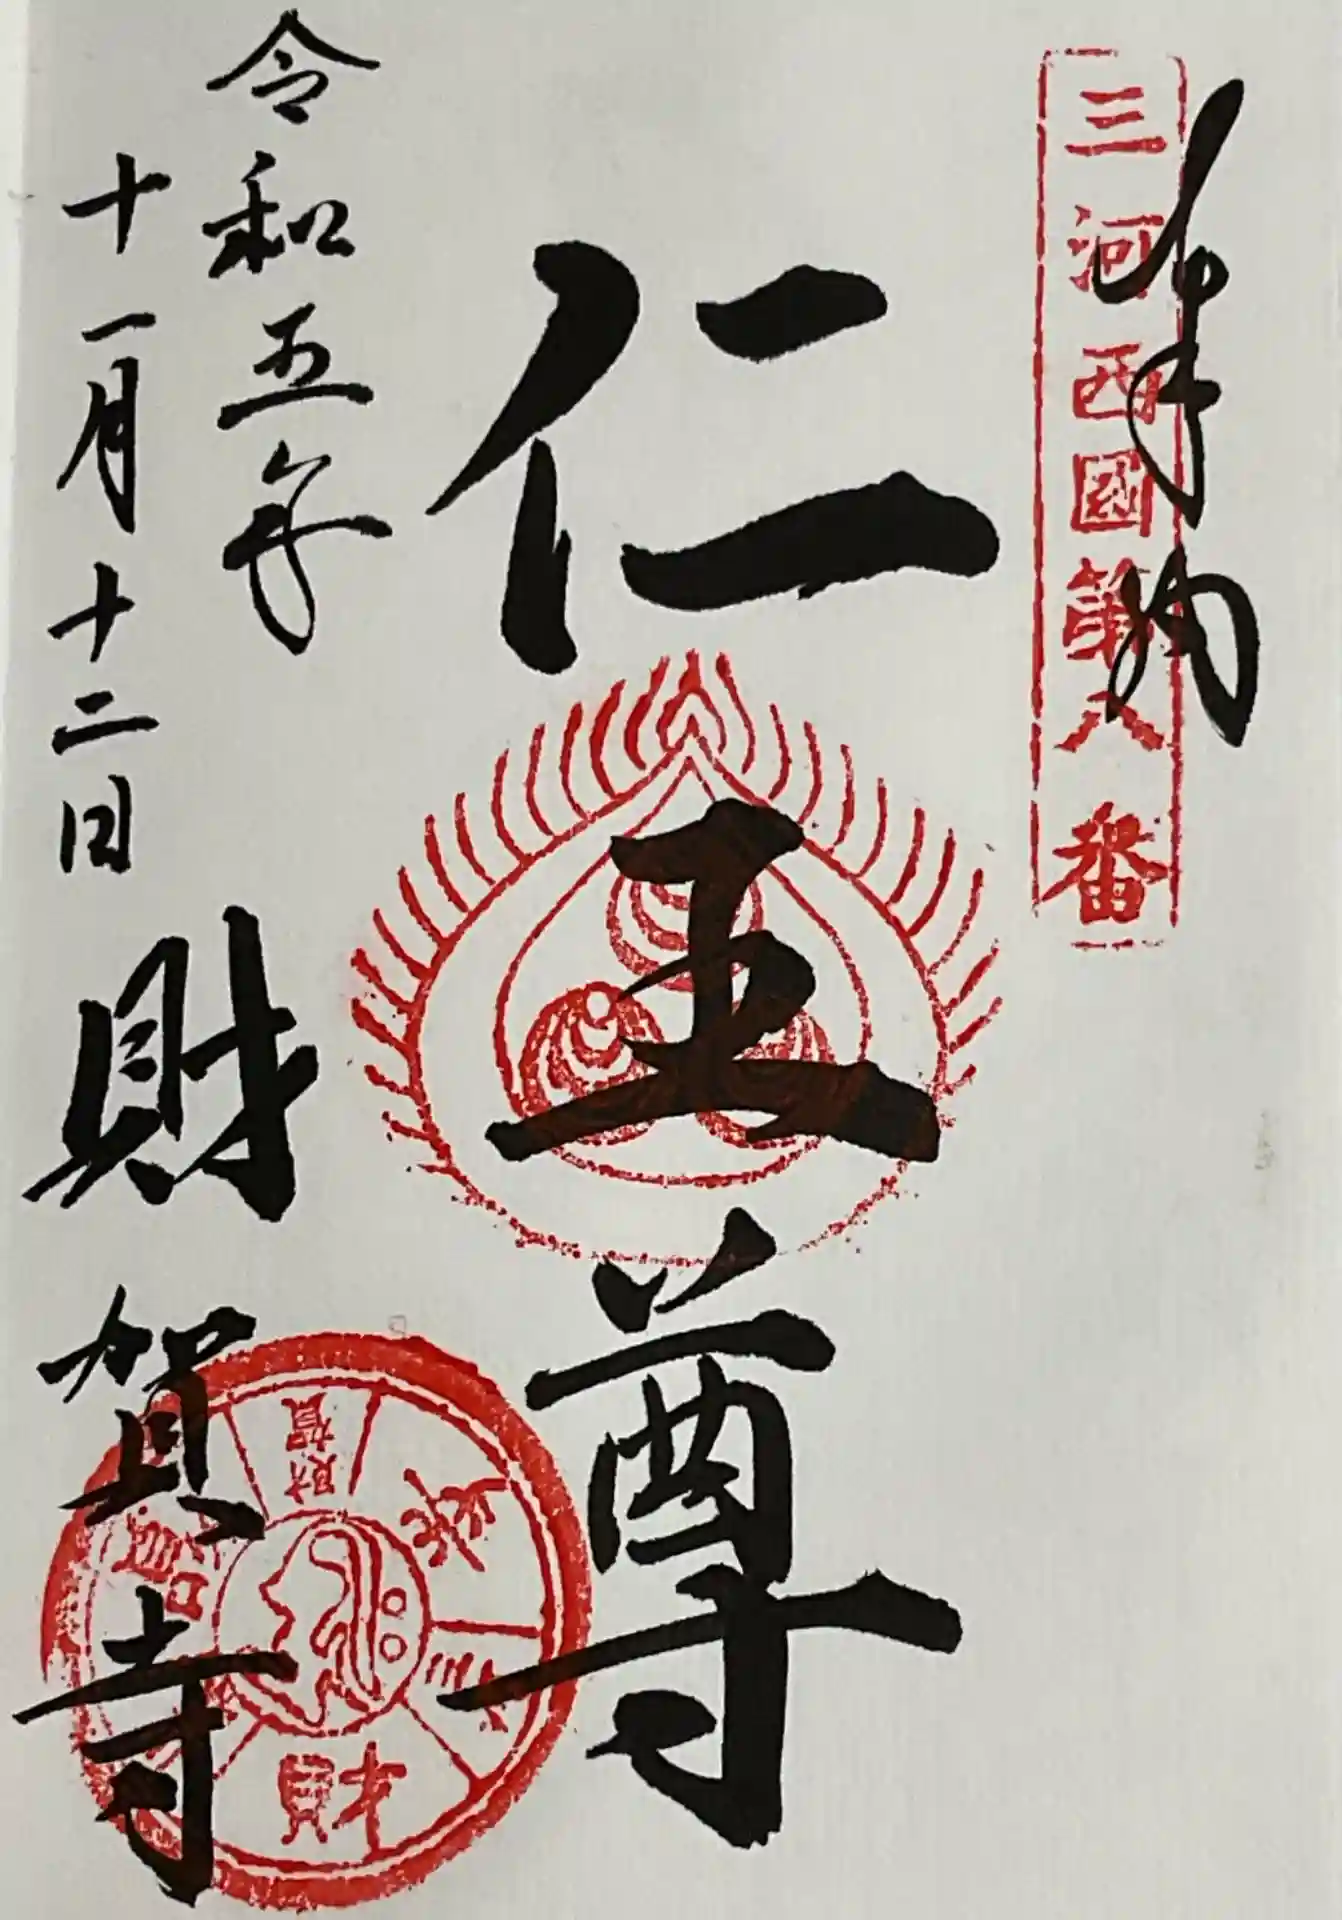 奉納
三河西國第八番
仁王尊
令和五年
十一月十二日
財賀寺
財賀
財